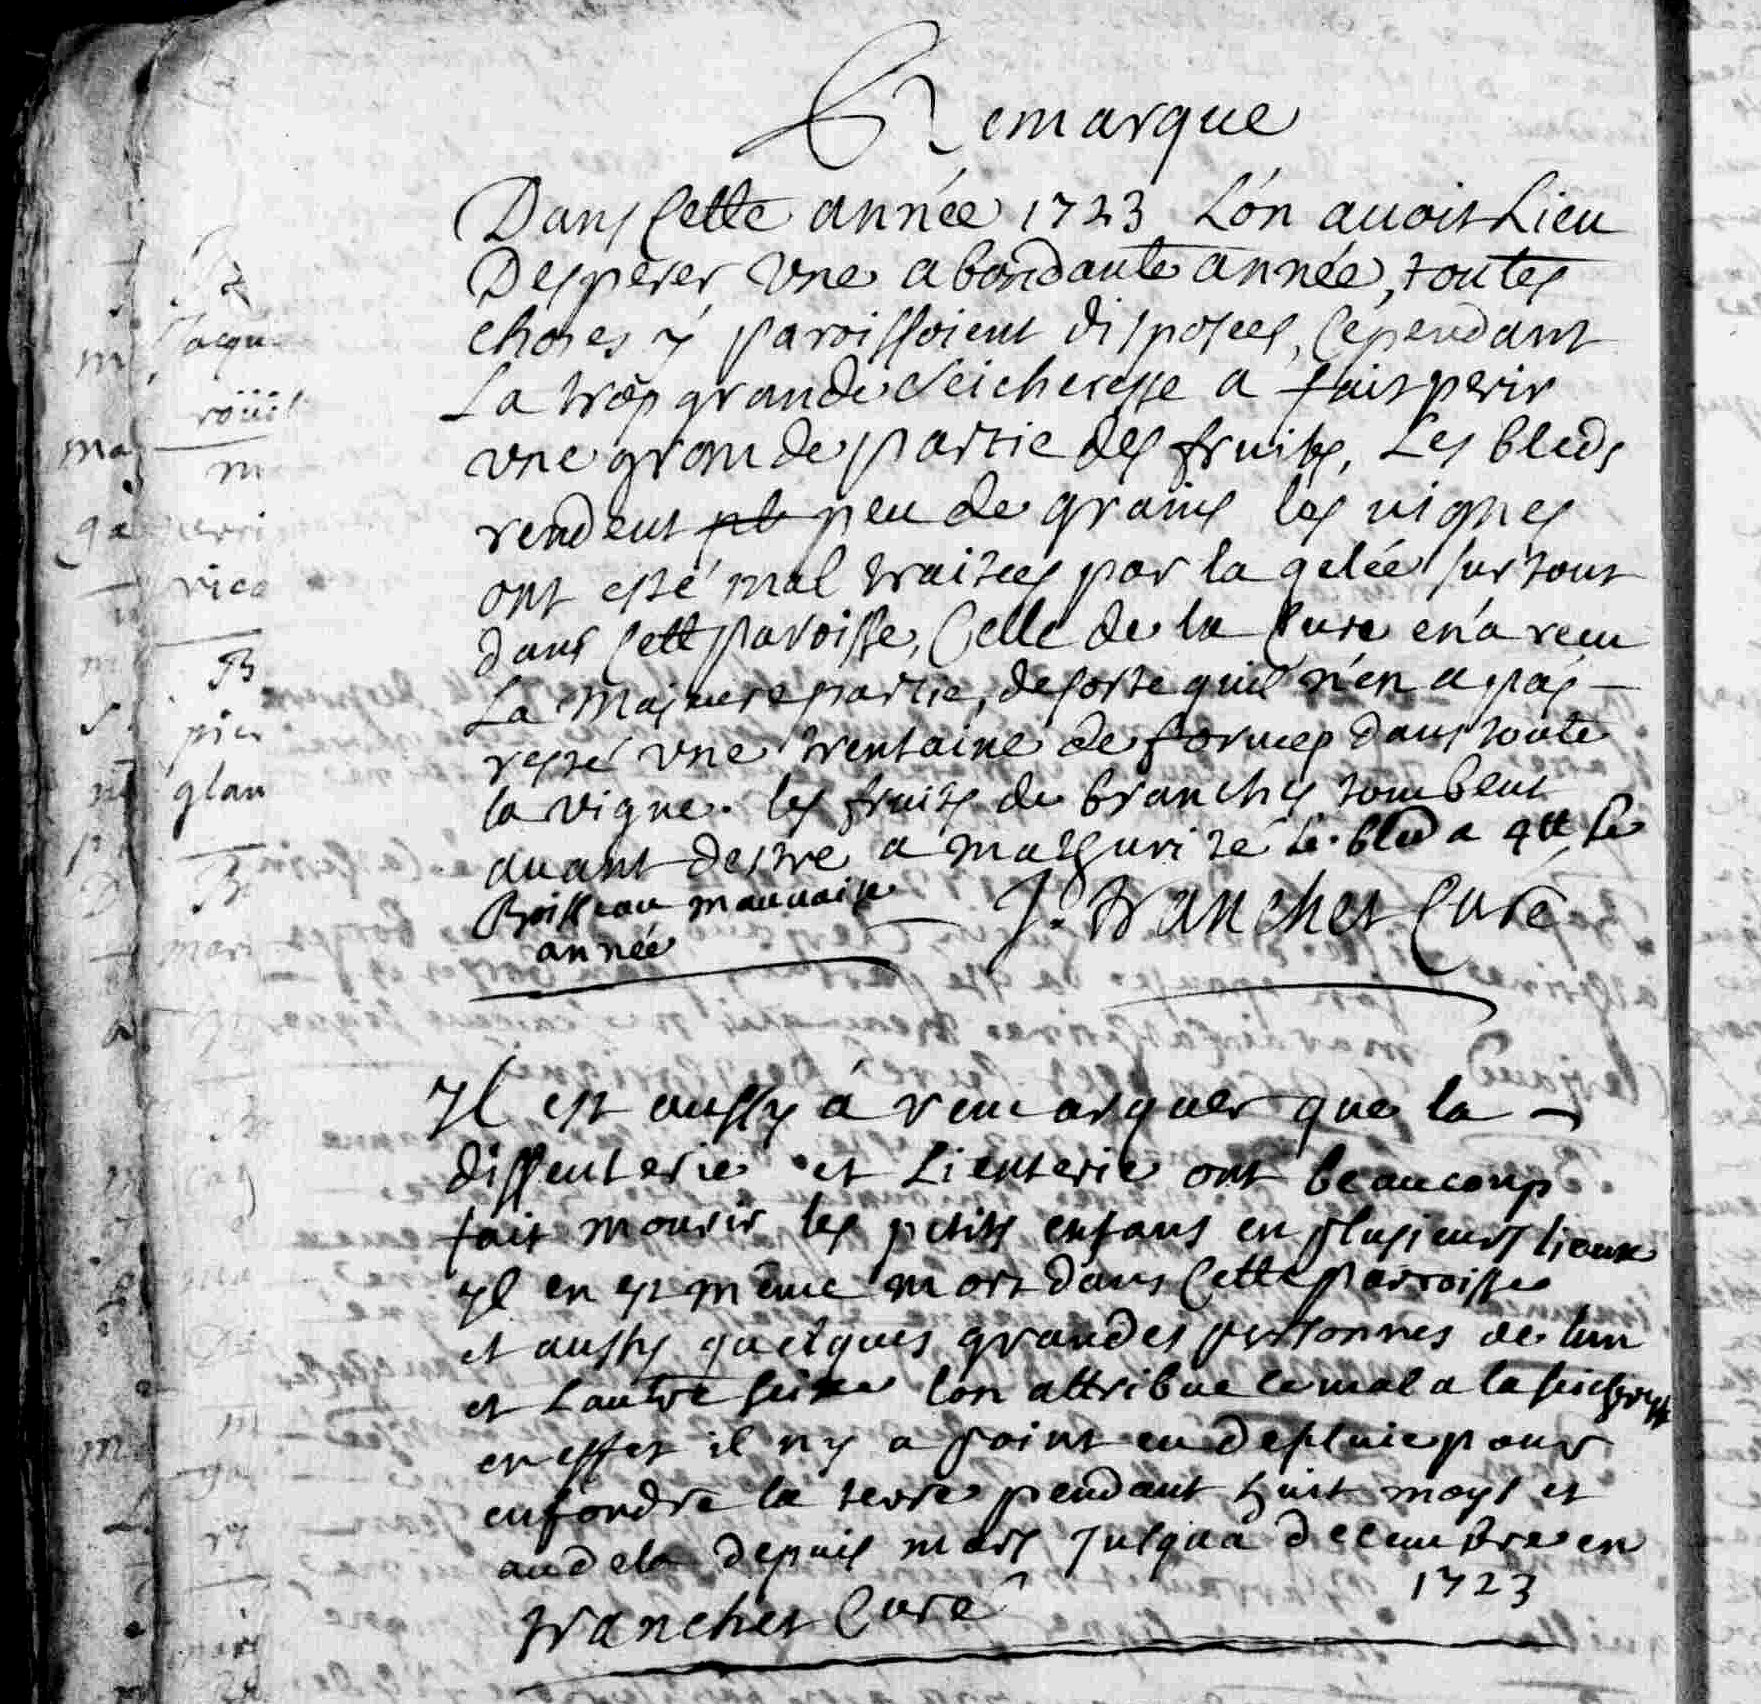 Remarque
Dans Cette année 1723 L'on auoit Lieu
Desperer vne abondante année, toutes
choses y paroissoient disposées, Cependant
La trop grande seicheresse a fait perir
vne grande partie des fruits, Les bleds
rendent pl peu de grains les vignes
ont esté mal traitées par la gelée sur tout
dans Cette paroisse, Celle de la Cure en a receu
La majeure partie, de sorte quil n'en a pas
resté vne trentaine de dans toute
la vigne. les fruits de branches tombent
auant destre a mathurité Le bled a 4tt le
Boisseau mauuaise
année
J. tranchet Curé
Il est aussy à remarquer que la
dissenterie et Lienterie ont beaucoup
fait mourir les petits enfans en plusieurs lieux
yl en est même mort dans Cette parroisse
et aussy quelques grandes personnes de lun
et Lautre seixe lon attribue le mal a la seicheresse
en effet il ny a point eu de pluie pour
enfondre la terre pendant huit moys et
audela depuis mars Jusqua decembre en
1723
tranchet Curé
Jacqu
ma
m
vica
pier
glan
mari